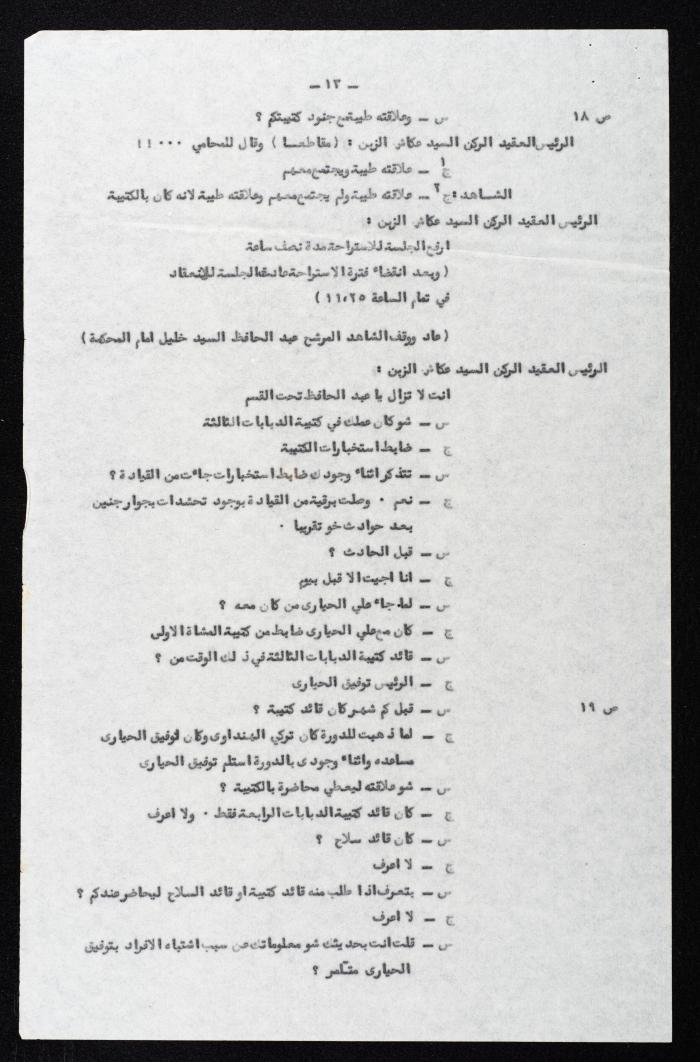 - ١٣ -
ص ١٨ س - وعلاقته طيبة مع جنود كتيبتكم ؟
الرئيس العقيد الركن السيد عكاش الزبن : ( مقاطعا ) وقال للمحامي ٠٠٠ ! !
ج١ - علاقته طيبة ويجتمع معهم
الشاهد : ج٢ - علاقته طيبة ولم يجتمع معهم وعلاقته طيبة لانه كان بالكتيبة
الرئيس العقيد الركن السيد عكاش الزبن :
ارفع الجلسة للاستراحة مدة نصف ساعة
( وبعد انقضاء فترة الاستراحة عادت الجلسة للانعقاد
في تمام الساعة ١١،٢٥ )
( عاد ووقف الشاهد المرشح عبد الحافظ السيد خليل امام المحكمة )
الرئيس العقيد الركن السيد عكاش الزبن :
انت لا تزال يا عبد الحافظ تحت القسم
س - شو كان عملك في كتيبة الدبابات الثالثة
ج - ضابط استخبارات الكتيبة
س - تتذكر اثناء وجودك ضابط استخبارات جاءت من القيادة ؟
ج - نعم ٠ وصلت برقية من القيادة بوجود تحشدات بجوار جنين
بعد حوادث خو تقريبا ٠
س - قبل الحادث ؟
ج - انا اجيت الا قبل بيوم
س - لما جاء علي الحيارى من كان معه ؟
ج - كان مع علي الحيارى ضابط من كتيبة المشاة الاولى
س - قائد كتيبة الدبابات الثالثة في ذلك الوقت من ؟
ج - الرئيس توفيق الحيارى
ص ١٩ س - قبل كم شهر كان قائد كتيبة ؟
ج - لما ذهبت للدورة كان تركي الهنداوى وكان توفيق الحيارى
مساعده واثناء وجودى بالدورة استلم توفيق الحيارى
س - شو علاقته ليعطي محاضرة بالكتيبة ؟
ج - كان قائد كتيبة الدبابات الرابعة فقط ٠ ولا اعرف
س - كان قائد سلاح ؟
ج - لا اعرف
س - بتعرف اذا طلب منه قائد كتيبة او قائد السلاح ليحاضر عندكم ؟
ج - لا اعرف
س - قلت انت بحديثك شو معلوماتك عن سبب اشتباه الافراد بتوفيق
الحيارى متآمر ؟